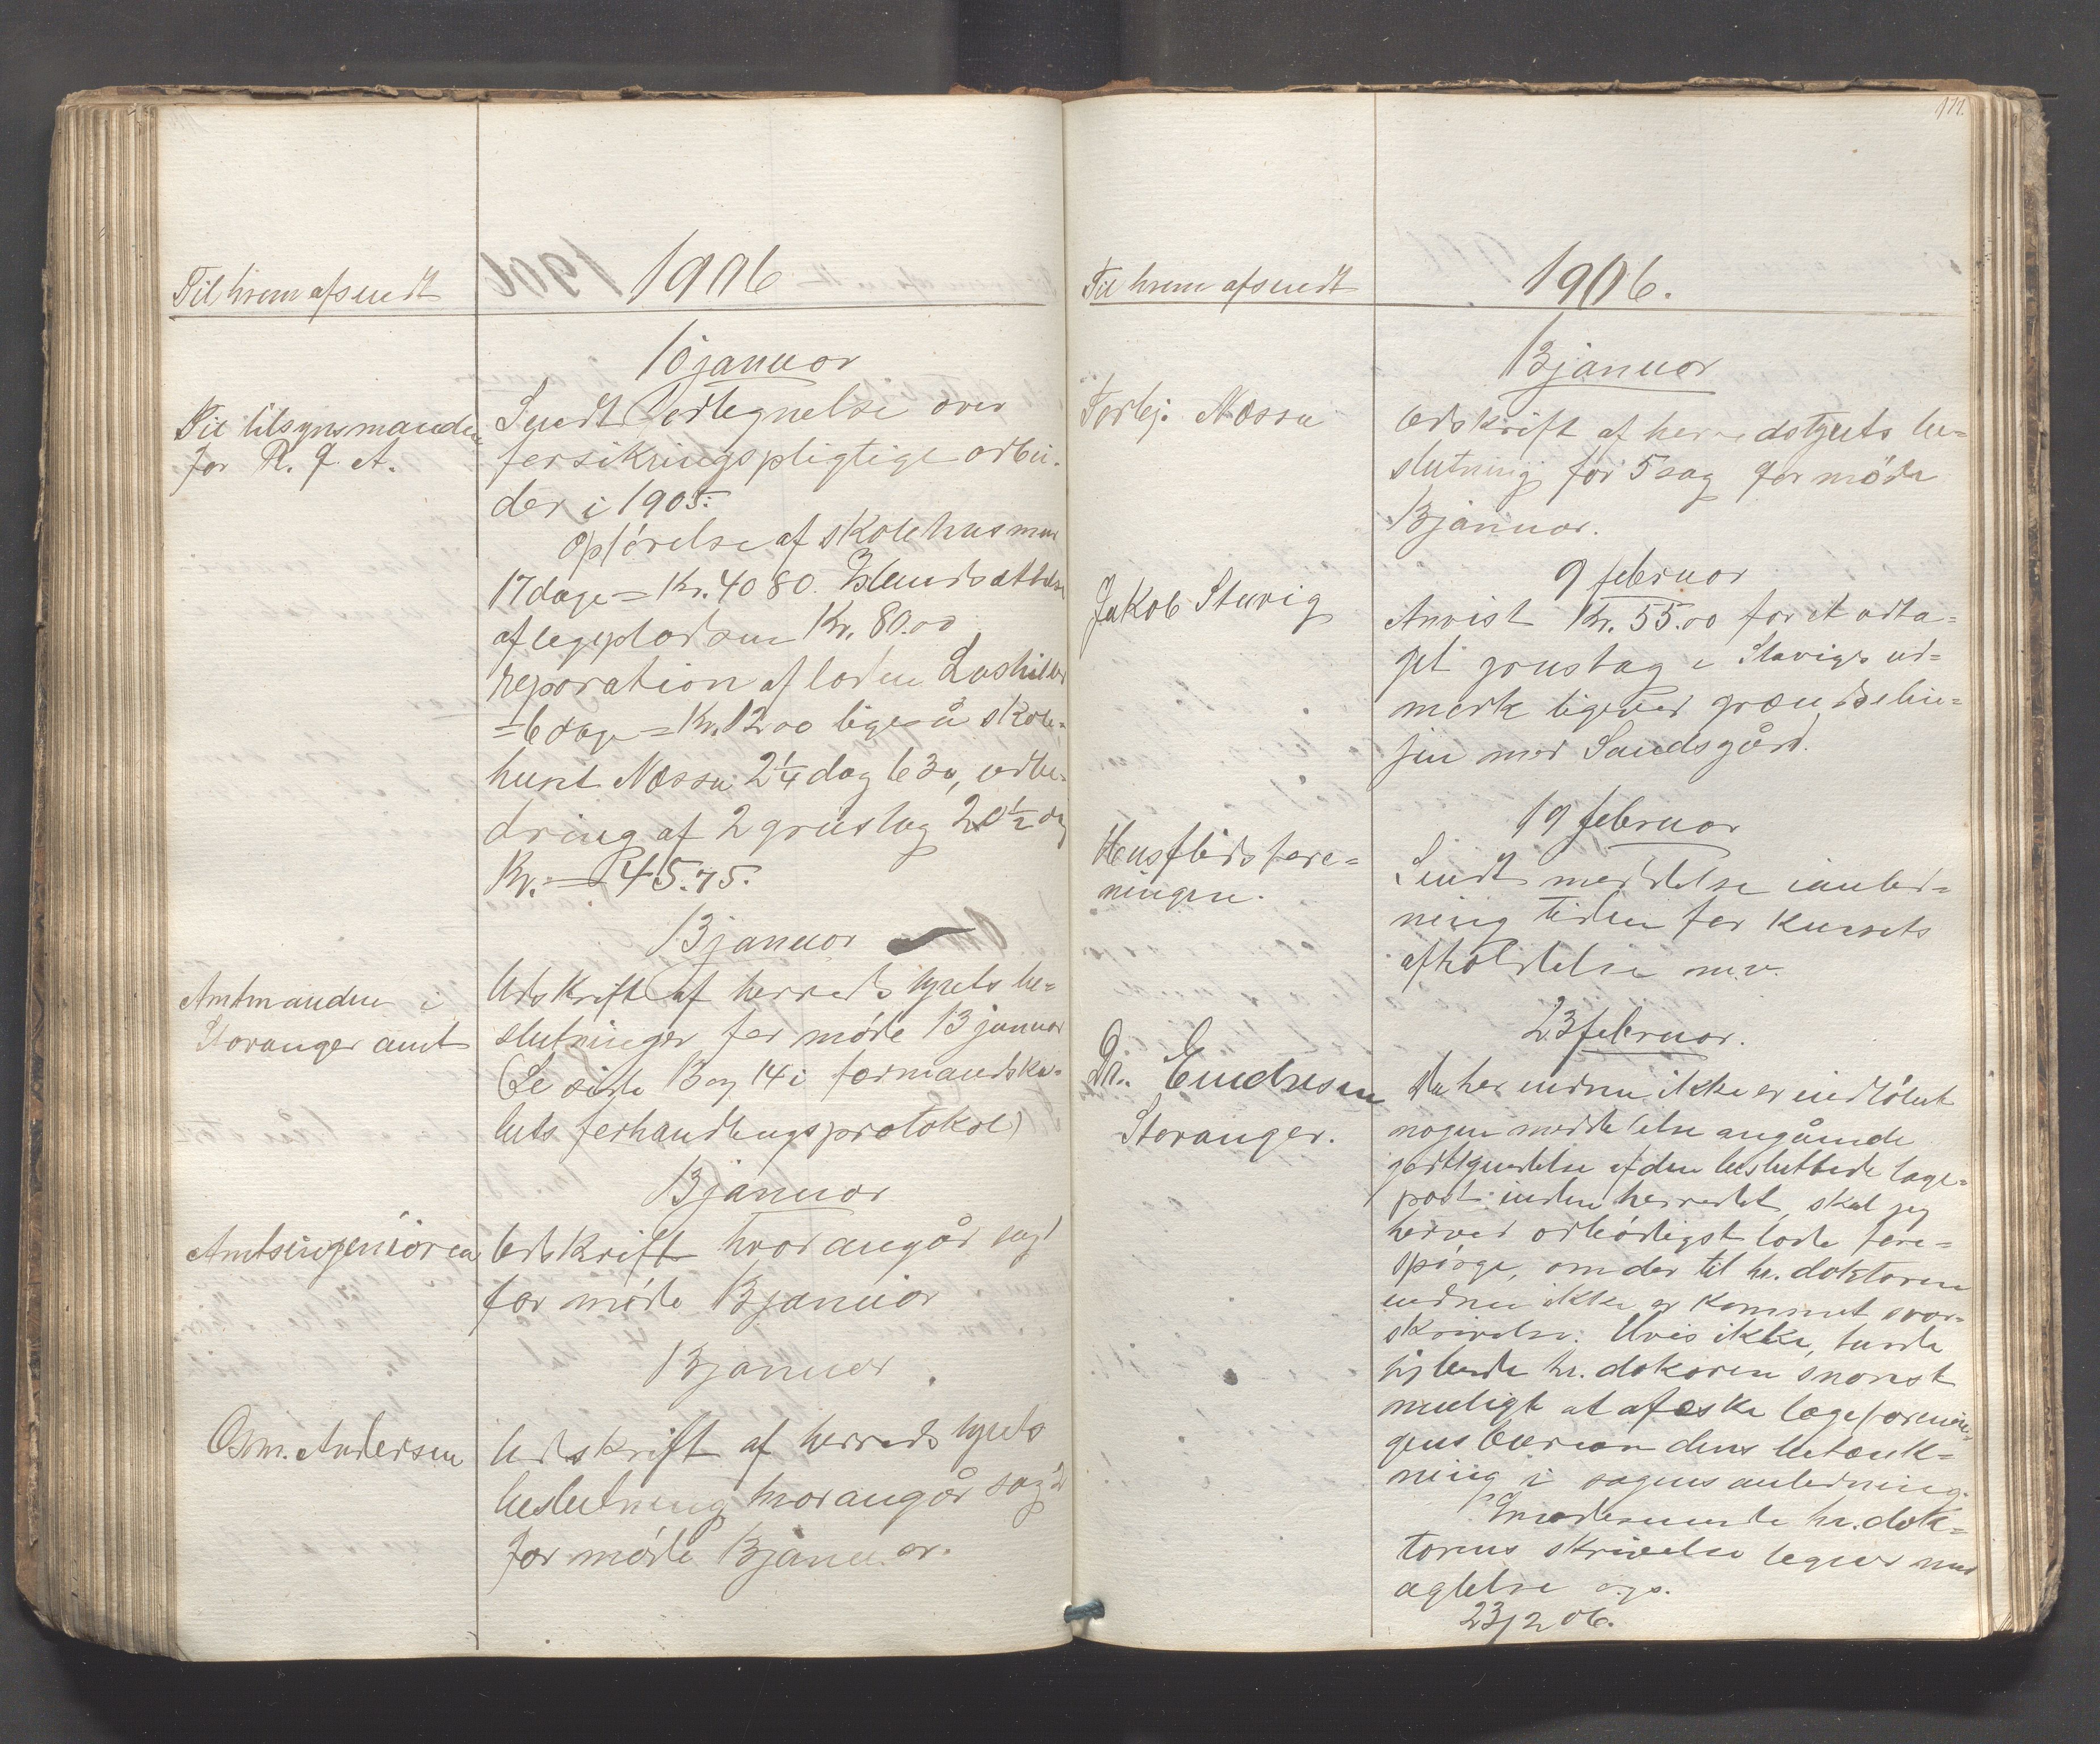 Til hvem afsendt
1906
10 januar
Til tilsynsmanden
for R. F. A.
Sendt Fortegnelse over
forsikringspligtige arbei-
der i 1905.
Opførelse af skolehus m m
17 dage = Kr. 40 80. Istandsættelse
af legepladsen Kr. 80.00
reparation af laden
= 6 dage = Kr. 12.00 ligeså skole-
huset Næssa 2 1/4 dag 6 30, udbe-
dring af 2 grustag 20 1/2 dag
Kr. = 45.75.
13 januar
Amtmanden i
Stavanger amt
Udskrift af herredstyrets be-
slutninger for møde 13 januar
(Se side 13 og 14 i formandska-
bets forhandlingsprotokol)
13 januar
Amtsingeniøren
Udskrift hvad angår sag 1
for møde 13 januar
13 januar
Osm. Andersen
Udskrift af herredstyrets
beslutning hvad angår sag
for møde 13 januar.
171.
Til hvem afsendt
1906.
13 januar
Torbj. Næssa
Udskrift af herredstyrets be-
slutning for 5 sag for møde
13 januar.
9 februar
Jakob Stavig
Anvist Kr. 55.00 for et udta-
get grustag i Stavigs ud-
mark ligeved grændselin-
jen med Sandsgård.
19 februar
Husflidsfore-
ningen.
Sendt meddelse ianled-
ning tiden for kursets
afholdelse m.v.
23 februar.
Dr. Endresen
Stavanger.
Da her endnu ikke er indløbet
nogen meddelelse angående
godkjendelse af den besluttede læge-
post inden herredet, skal jeg
herved ærbødigst lade fore-
spørge, om der til hr. doktoren
endnu ikke er kommet svar-
skrivelse. Hvis ikke, turde
jeg bede hr. dokoren snarest
muligt at afæske lægeforenin-
gens dens betænk-
ning i sagens anledning.
Imødeseende hr. dok-
torens skrivelse tegner med
agtelse
23/2 06.